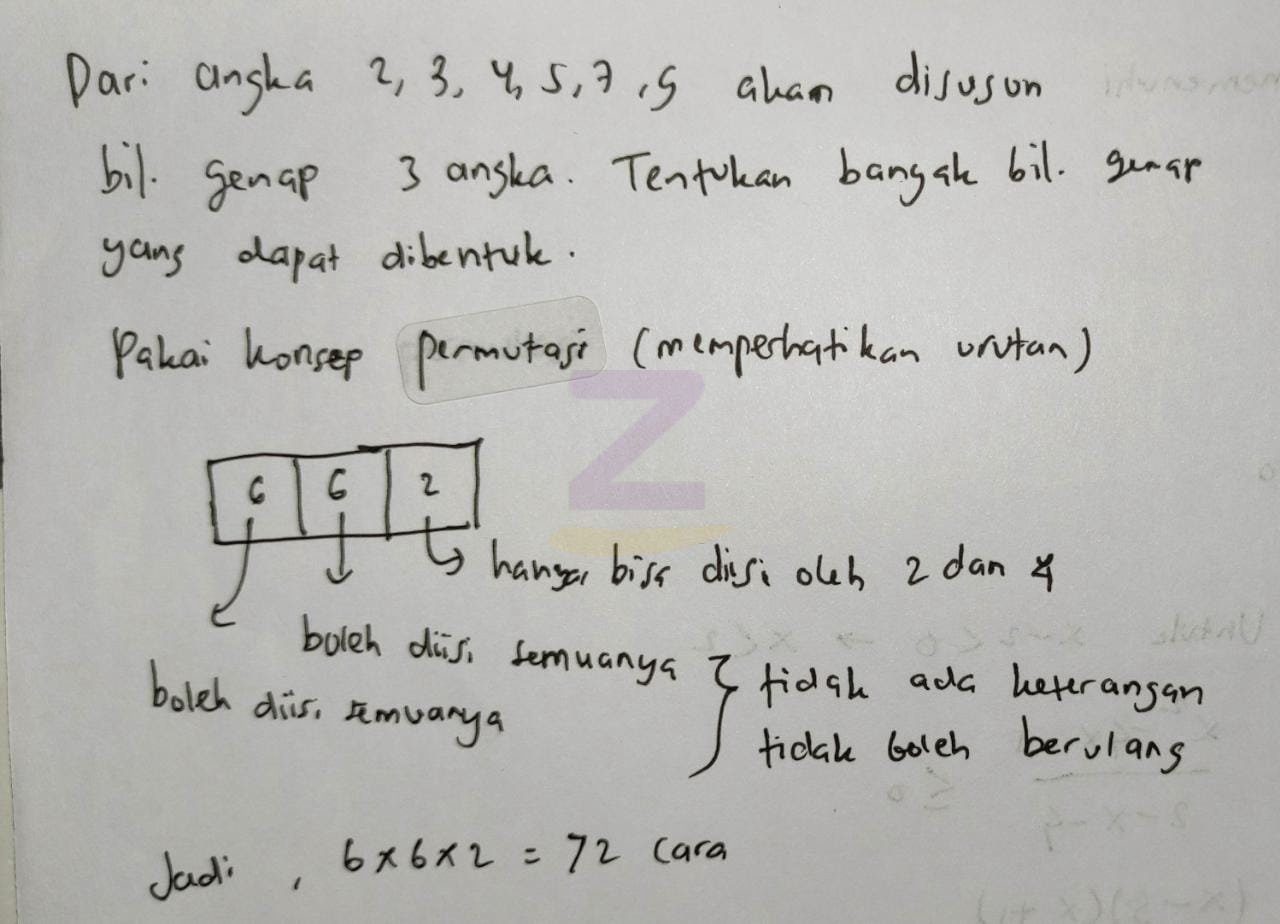 Dari angka 2, 3, 4, 5, 7, 9 akan disusun
bil. genap 3 angka. Tentukan banyak bil. genap
yang dapat dibentuk.
Pakai konsep permutasi (memperhatikan urutan)
6 6 2
hanya bisa diisi oleh 2 dan 4
boleh diisi semuanya
boleh diisi semuanya
} tidak ada keterangan
tidak boleh berulang
Jadi, 6x6x2 = 72 cara
Z